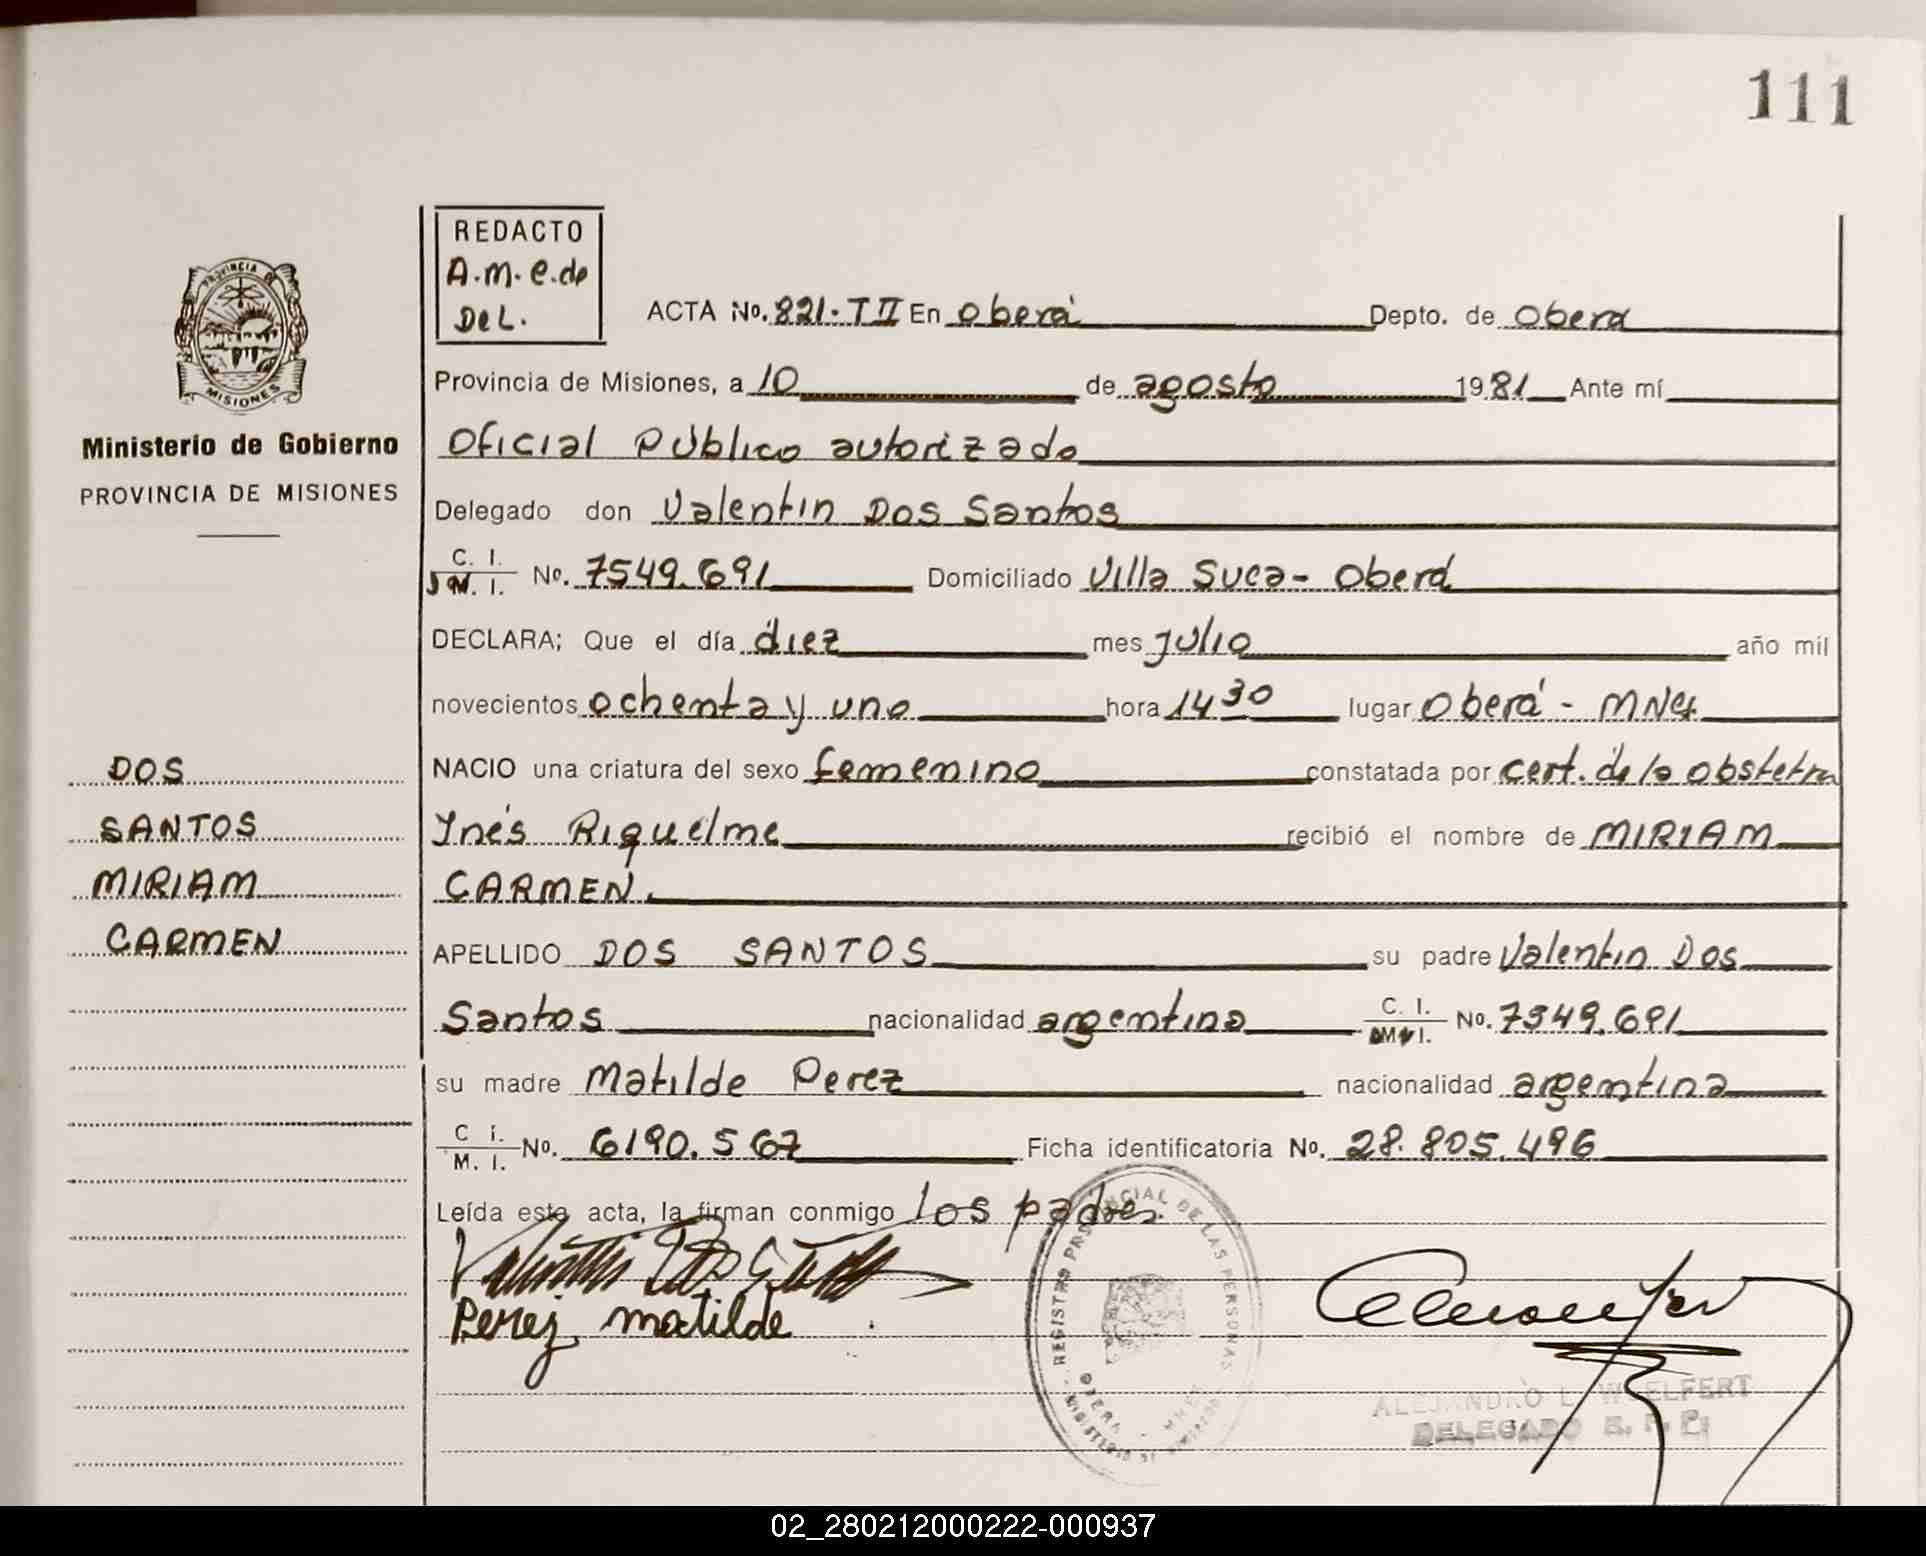 111
PROVINCIA DE
MISIONES
Ministerio de Gobierno
PROVINCIA DE MISIONES
DOS
SANTOS
MIRIAM
CARMEN
REDACTO
A.M.e.de
DeL.
ACTA No. 821-TII En Oberá Depto. de Oberá
Provincia de Misiones, a 10 de agosto 1981 Ante mí
Oficial Público autorizado
Delegado don Valentin Dos Santos
C. I.
M. I. No. 7549.691 Domiciliado Villa Suca- Oberá
DECLARA; Que el día diez mes Julio año mil
novecientos ochenta y uno hora 14 30 lugar Oberá - MNes
NACIO una criatura del sexo femenino constatada por cert. de la obstetra
Inés Riquelme recibió el nombre de MIRIAM
CARMEN.
APELLIDO DOS SANTOS su padre Valentin Dos
Santos nacionalidad argentina C. I. M. I. No. 7549.691
su madre Matilde Perez nacionalidad argentina
C. I.
M. I. No. 6190.567 Ficha identificatoria No. 28.805.496
Leída esta acta, la firman conmigo los padres.
Valentin Dos Santos
Perez matilde
REGISTRO PROVINCIAL DE LAS PERSONAS
OBERA
ALEJANDRO L. WOELFERT
DELEGADO R. P. P.
02_280212000222-000937